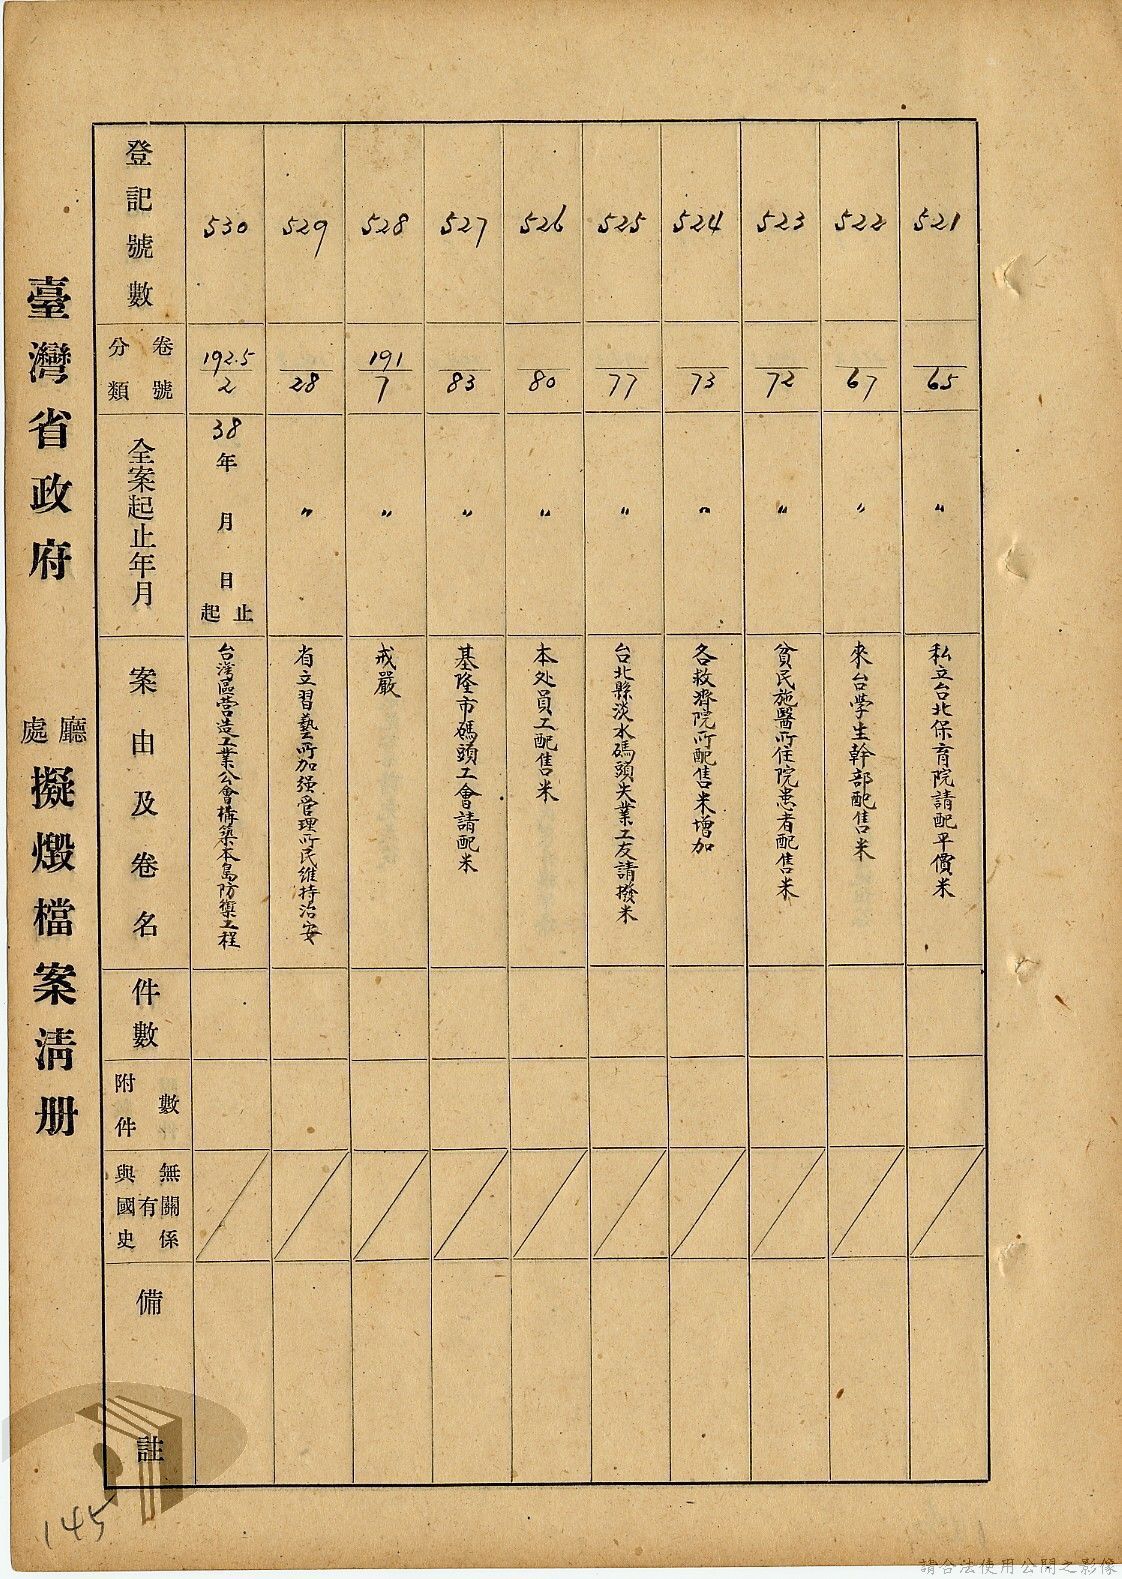 臺灣省政府 廳處 擬燬檔案清册
登記號數
分類 卷號
全案起止年月
案由及卷名
件數
附件 數
與國史 有無關係
備註
530
192.5/2
38年 月 日 起止
台湾區营造工業公會構築本島防禦工程
529
28
〃
省立習藝所加强管理所民維持治安
528
191/7
〃
戒嚴
527
83
〃
基隆市碼頭工會請配米
526
80
〃
本处員工配售米
525
77
〃
台北縣淡水碼頭失業工友請撥米
524
73
〃
各救濟院所配售米增加
523
72
〃
貧民施醫所住院患者配售米
522
67
〃
來台學生幹部配售米
521
65
〃
私立台北保育院請配平價米
145
請合法使用公開之影像